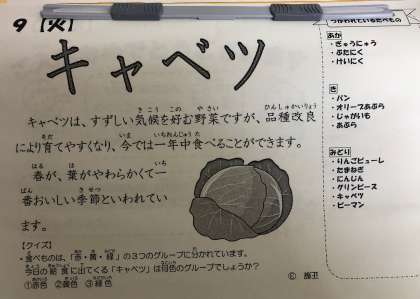 9【火】
キャベツ
キャベツは、すずしい気候を好む野菜ですが、品種改良
により育てやすくなり、今では一年中食べることができます。
春が、葉がやわらかくて一
番おいしい季節といわれてい
ます。
【クイズ】
・食べものは、「赤・黄・緑」の3つのグループに分かれています。
今日の給食に出てくる「キャベツ」は何色のグループでしょうか?
①赤色 ②黄色 ③緑色
つかわれているたべもの
あか
・ぎゅうにゅう
・ぶたにく
・けいにく
き
・パン
・オリーブあぶら
・じゃがいも
・あぶら
みどり
・りんごピューレ
・たまねぎ
・にんじん
・グリンピース
・キャベツ
・ピーマン